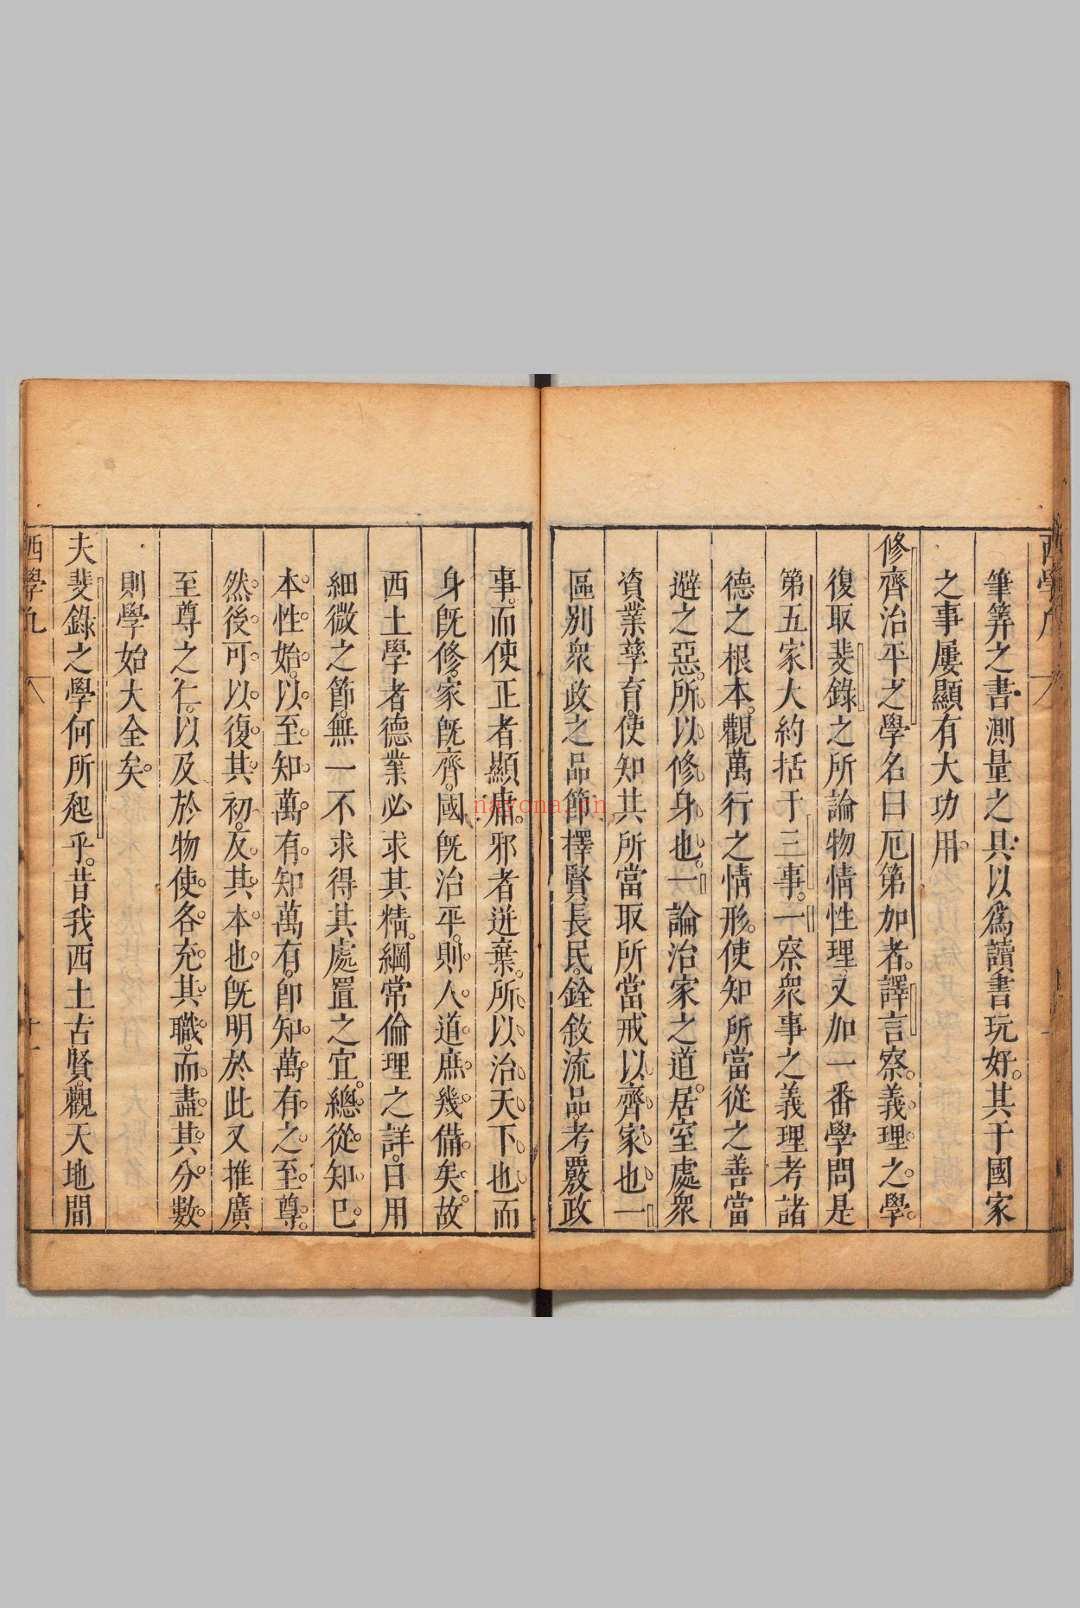 筆筭之書測量之具以爲讀書玩好其于國家
之事屢顯有大功用
修齊治平之學名曰厄第加者譯言察義理之學
復取斐錄之所論物情性理又加一番學問是
第五家大約括于三事一察衆事之義理考諸
德之根本觀萬行之情形使知所當從之善當
避之惡所以修身也一論治家之道居室處衆
資業孳育使知其所當取所當戒以齊家也一
區別衆政之品節擇賢長民銓敘流品考覈政
事而使正者顯庸邪者迸棄所以治天下也而
身旣修家旣齊國旣治平則人道庶幾備矣故
西土學者德業必求其精綱常倫理之詳日用
細微之節無一不求得其處置之宜總從知已
本性始以至知萬有知萬有卽知萬有之至尊
然後可以復其初反其本也旣明於此又推廣
至尊之仁以及於物使各充其職而盡其分數
則學始大全矣
夫斐錄之學何所起乎昔我西土古賢觀天地間
西學凡
十一
nayona.cn